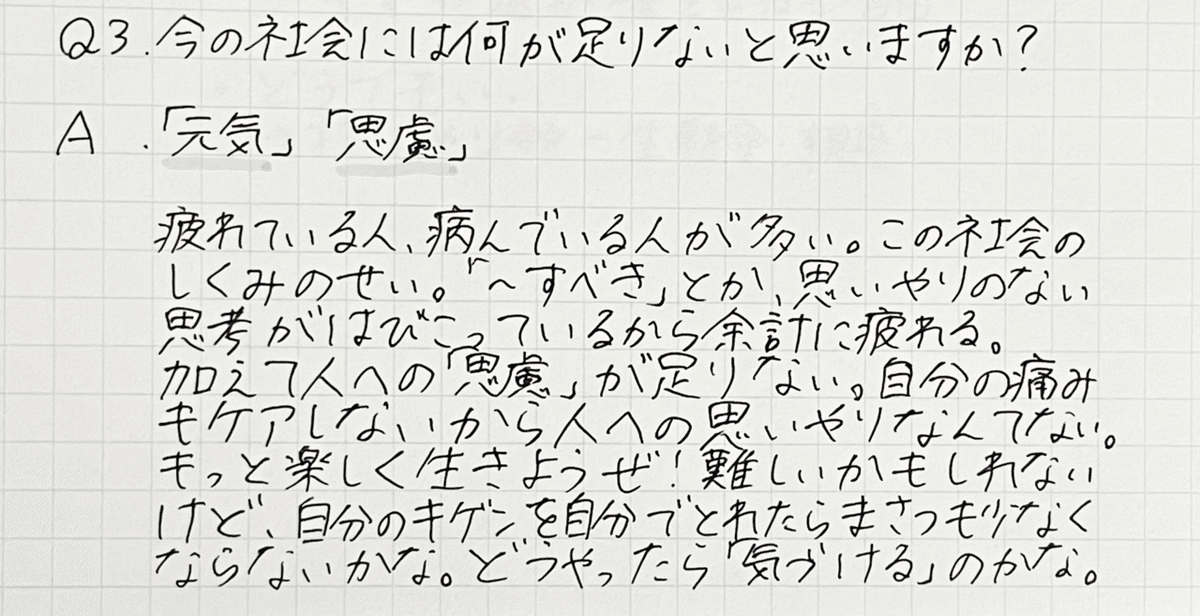 Q3.今の社会には何が足りないと思いますか?
A.「元気」「思慮」
疲れている人、病んでいる人が多い。この社会の
しくみのせい。「〜すべき」とか、思いやりのない
思考がはびこっているから余計に疲れる。
加えて人への「思慮」が足りない。自分の痛み
もケアしないから人への思いやりなんてない。
もっと楽しく生きようぜ!難しいかもしれない
けど、自分のキゲンを自分でとれたらまさつも少なく
ならないかな。どうやったら「気づける」のかな。